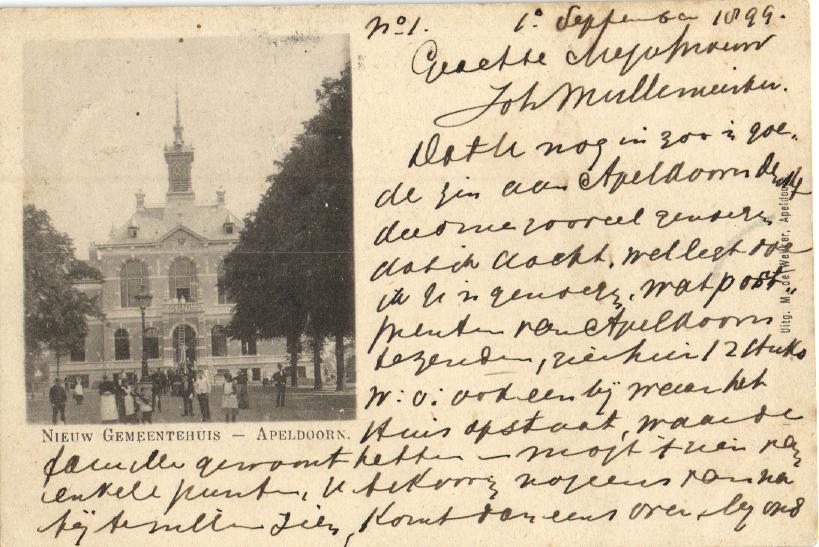 No 1. 1e September 1899.
Geachte Mejufvrouw
Joh Mullemeister.
Dat U nog in zoo'n goe-
de zin aan Apeldoorn denkt
deed me zooveel genoegen
dat ik dacht, wellegt doe
ik U 'n genoegen, wat post-
prenten van Apeldoorn
te zenden, zie hier 12 stuks
w: o: ook een bij waar het
Huis op staat, waar de
familie gewoont hebben - mogt 't zien van
enkele punten, U bekoor nog eens van na
bij te willen zien, Komt dan eens over, bij ons
NIEUW GEMEENTEHUIS — APELDOORN.
Uitg. M. de Wekker, Apeldoorn